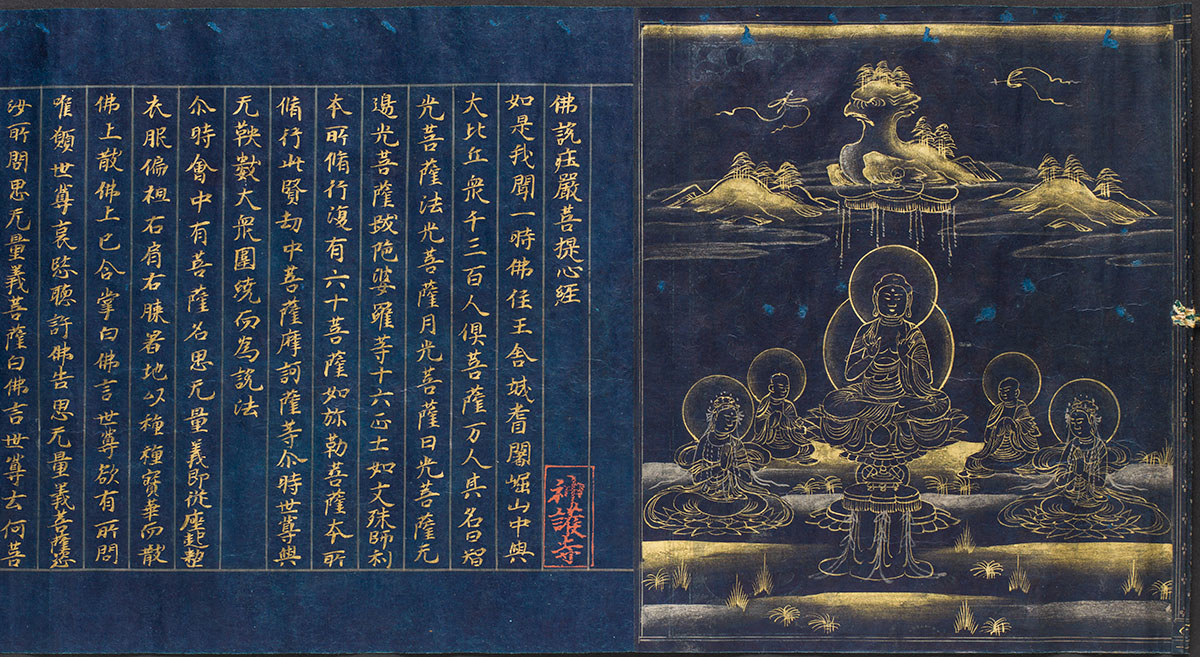 佛說莊嚴菩提心經
神護寺
如是我聞一時佛住王舍城耆闍崛山中與
大比丘衆千三百人俱菩薩万人其名曰智
光菩薩法光菩薩月光菩薩日光菩薩无
邊光菩薩跋陁婆羅等十六心士如文殊師利
本所脩行復有六十菩薩如弥勒菩薩本所
脩行此賢劫中菩薩摩訶薩等尒時世尊與
无鞅數大衆圍繞而為說法
尒時會中有菩薩名思无量義即從座起整
衣服偏袒右肩右膝著地以種種寶華而散
佛上散佛上已合掌白佛言世尊欲有所問
唯願世尊哀愍聽許佛告思无量義菩薩恣
汝所問思无量義菩薩白佛言世尊云何菩